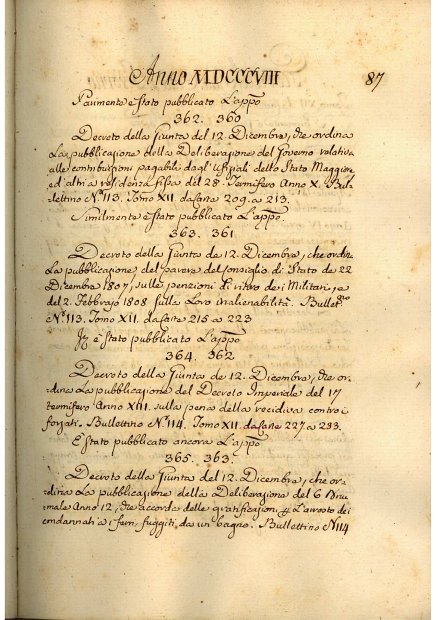 Anno MDCCCVIII 87
Parimente è stato pubblicato l'appo
362. 360
Decreto della Giunta del 12. Dicembre, che ordina
la pubblicazione della Deliberazione del Governo relativa
alle contribuzioni pagabili dagl' Ufiziali dello Stato Maggiore
ed altri a residenza fissa del 28. Termifero Anno X. Bul
lettino Nº. 113. Tomo XII da Carte 209. a 213.
Similmente è stato pubblicato l'appo
363. 361
Decreto della Giunta de 12. Dicembre, che ordina
la pubblicazione del parere del Consiglio di Stato de 22
Dicembre 1807, sulle penzioni di ritiro de i Militari, e
del 2. Febbrajo 1808 sulla loro inalienabilità. Bullet.no
Nº. 113. Tomo XII. da Carte 215 a 223
è stato pubblicato l'appo
364. 362
Decreto della Giunta de 12. Dicembre, che or
dina la pubblicazione del Decreto Imperiale del 17
termifero Anno XIII. sulla pena della recidiva contro i
forzati. Bullettino Nº 114. Tomo XII da Carte 227 a 233.
È stato pubblicato ancora l'appo
365. 363.
Decreto della Giunta del 12. Dicembre, che or
dina la pubblicazione della Deliberazione del 6 Bru
male Anno 12, che accorda delle gratificazioni l'arresto dei
condannati a i ferri, fuggiti da un bagno. Bullettino N 114